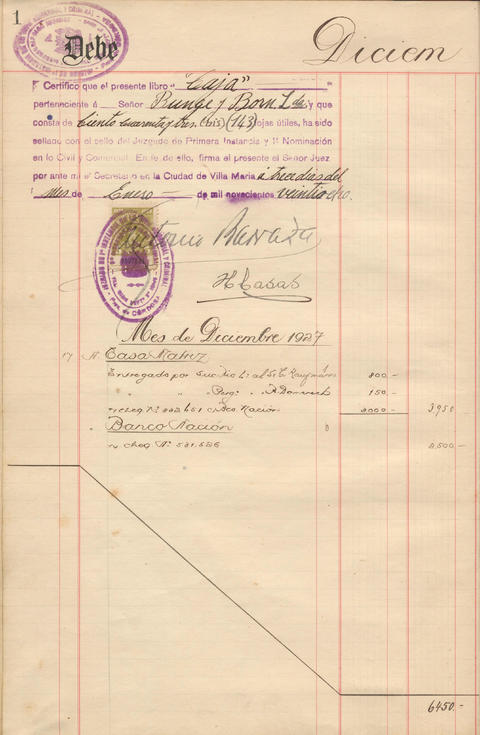 1
Debe
Diciem
Certifico que el presente libro "Caja"
perteneciente á Señor Bunge y Born Ltda y que
consta de Ciento cuarenta y tres (bis) (143) ojas útiles, ha sido
sellado con el sello del Juzgado de Primera Instancia y II Nominación
en lo Civil y Comercial. En fe de ello, firma al presente el Señor Juez
por ante mi el Secretario en la Ciudad de Villa María á trece días del
Mes de Enero de mil novecientos veintiocho.
Antonio
H Casas
Mes de Diciembre 1927
17 A Casa Matriz
Entregado por al Kaufmann 800.-
" " 150.-
n cheq Nº Nación 3000.- 3950
Banco Nación
n cheq Nº 531.526 2,500.-
6450.-